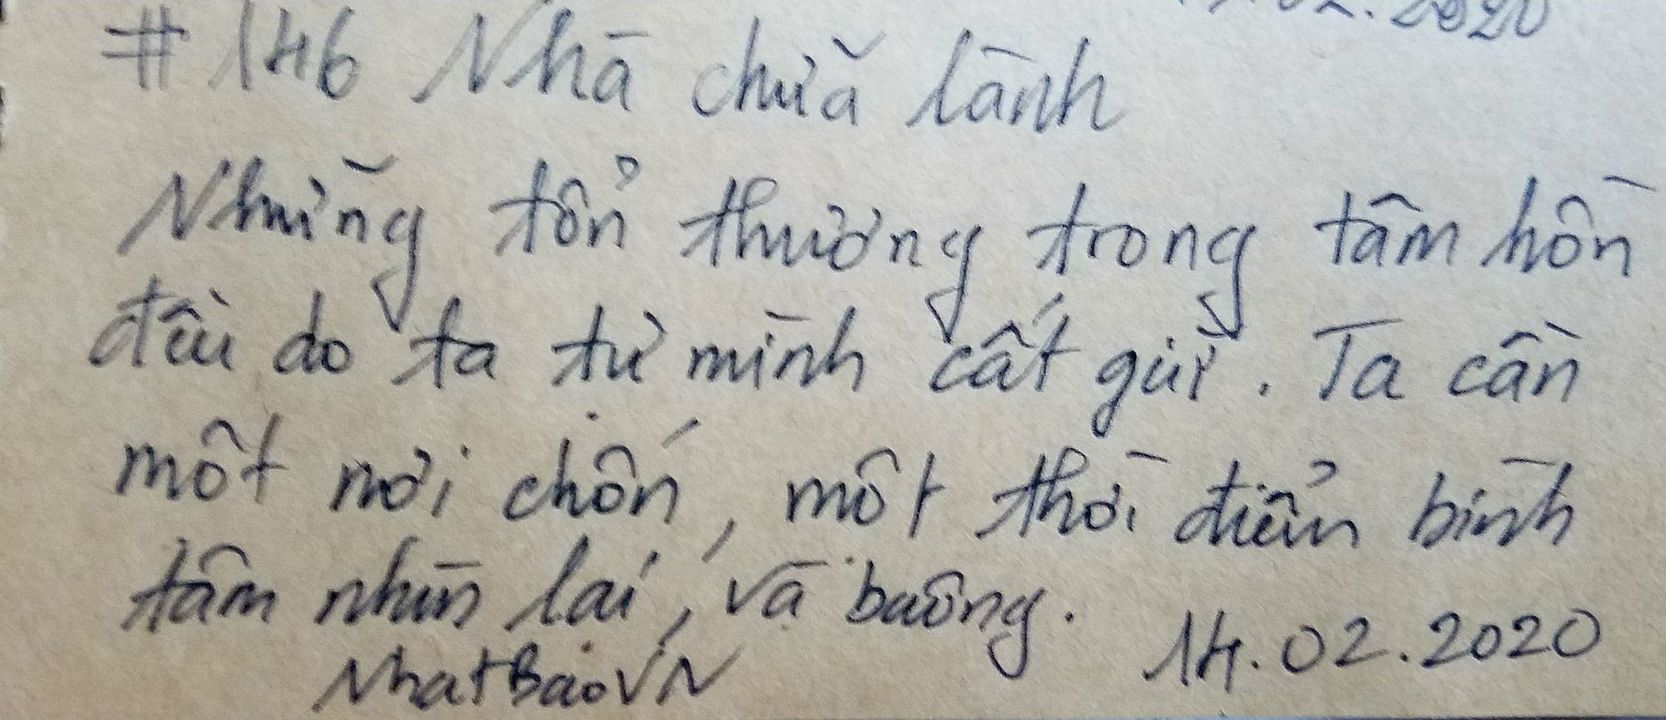 02.2020
#146 Nhà chữa lành
Những tổn thương trong tâm hồn
đều do ta tự mình cất gửi. Ta cần
một nơi chốn, một thời điểm bình
tâm nhìn lại, và buông.
NhatBaoVN 14.02.2020